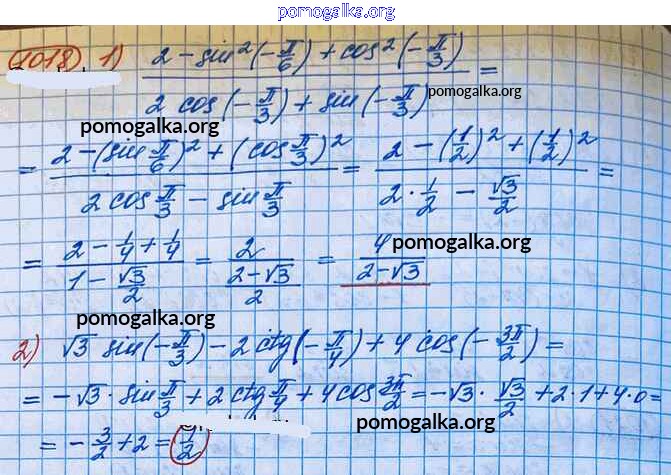 pomogalka.org
1018. 1) (2 - sin²(-π/6) + cos²(-π/3)) / (2 cos(-π/3) + sin(-π/3)) =
pomogalka.org
pomogalka.org
= (2 - (sin π/6)² + (cos π/3)²) / (2 cos π/3 - sin π/3) = (2 - (1/2)² + (1/2)²) / (2 · 1/2 - √3/2) =
= (2 - 1/4 + 1/4) / (1 - √3/2) = 2 / ((2-√3)/2) = 4 / (2-√3)
pomogalka.org
pomogalka.org
2) √3 sin(-π/3) - 2 ctg(-π/4) + 4 cos(-3π/2) =
= -√3 · sin π/3 + 2 ctg π/4 + 4 cos 3π/2 = -√3 · √3/2 + 2·1 + 4·0 =
pomogalka.org
= -3/2 + 2 = 1/2